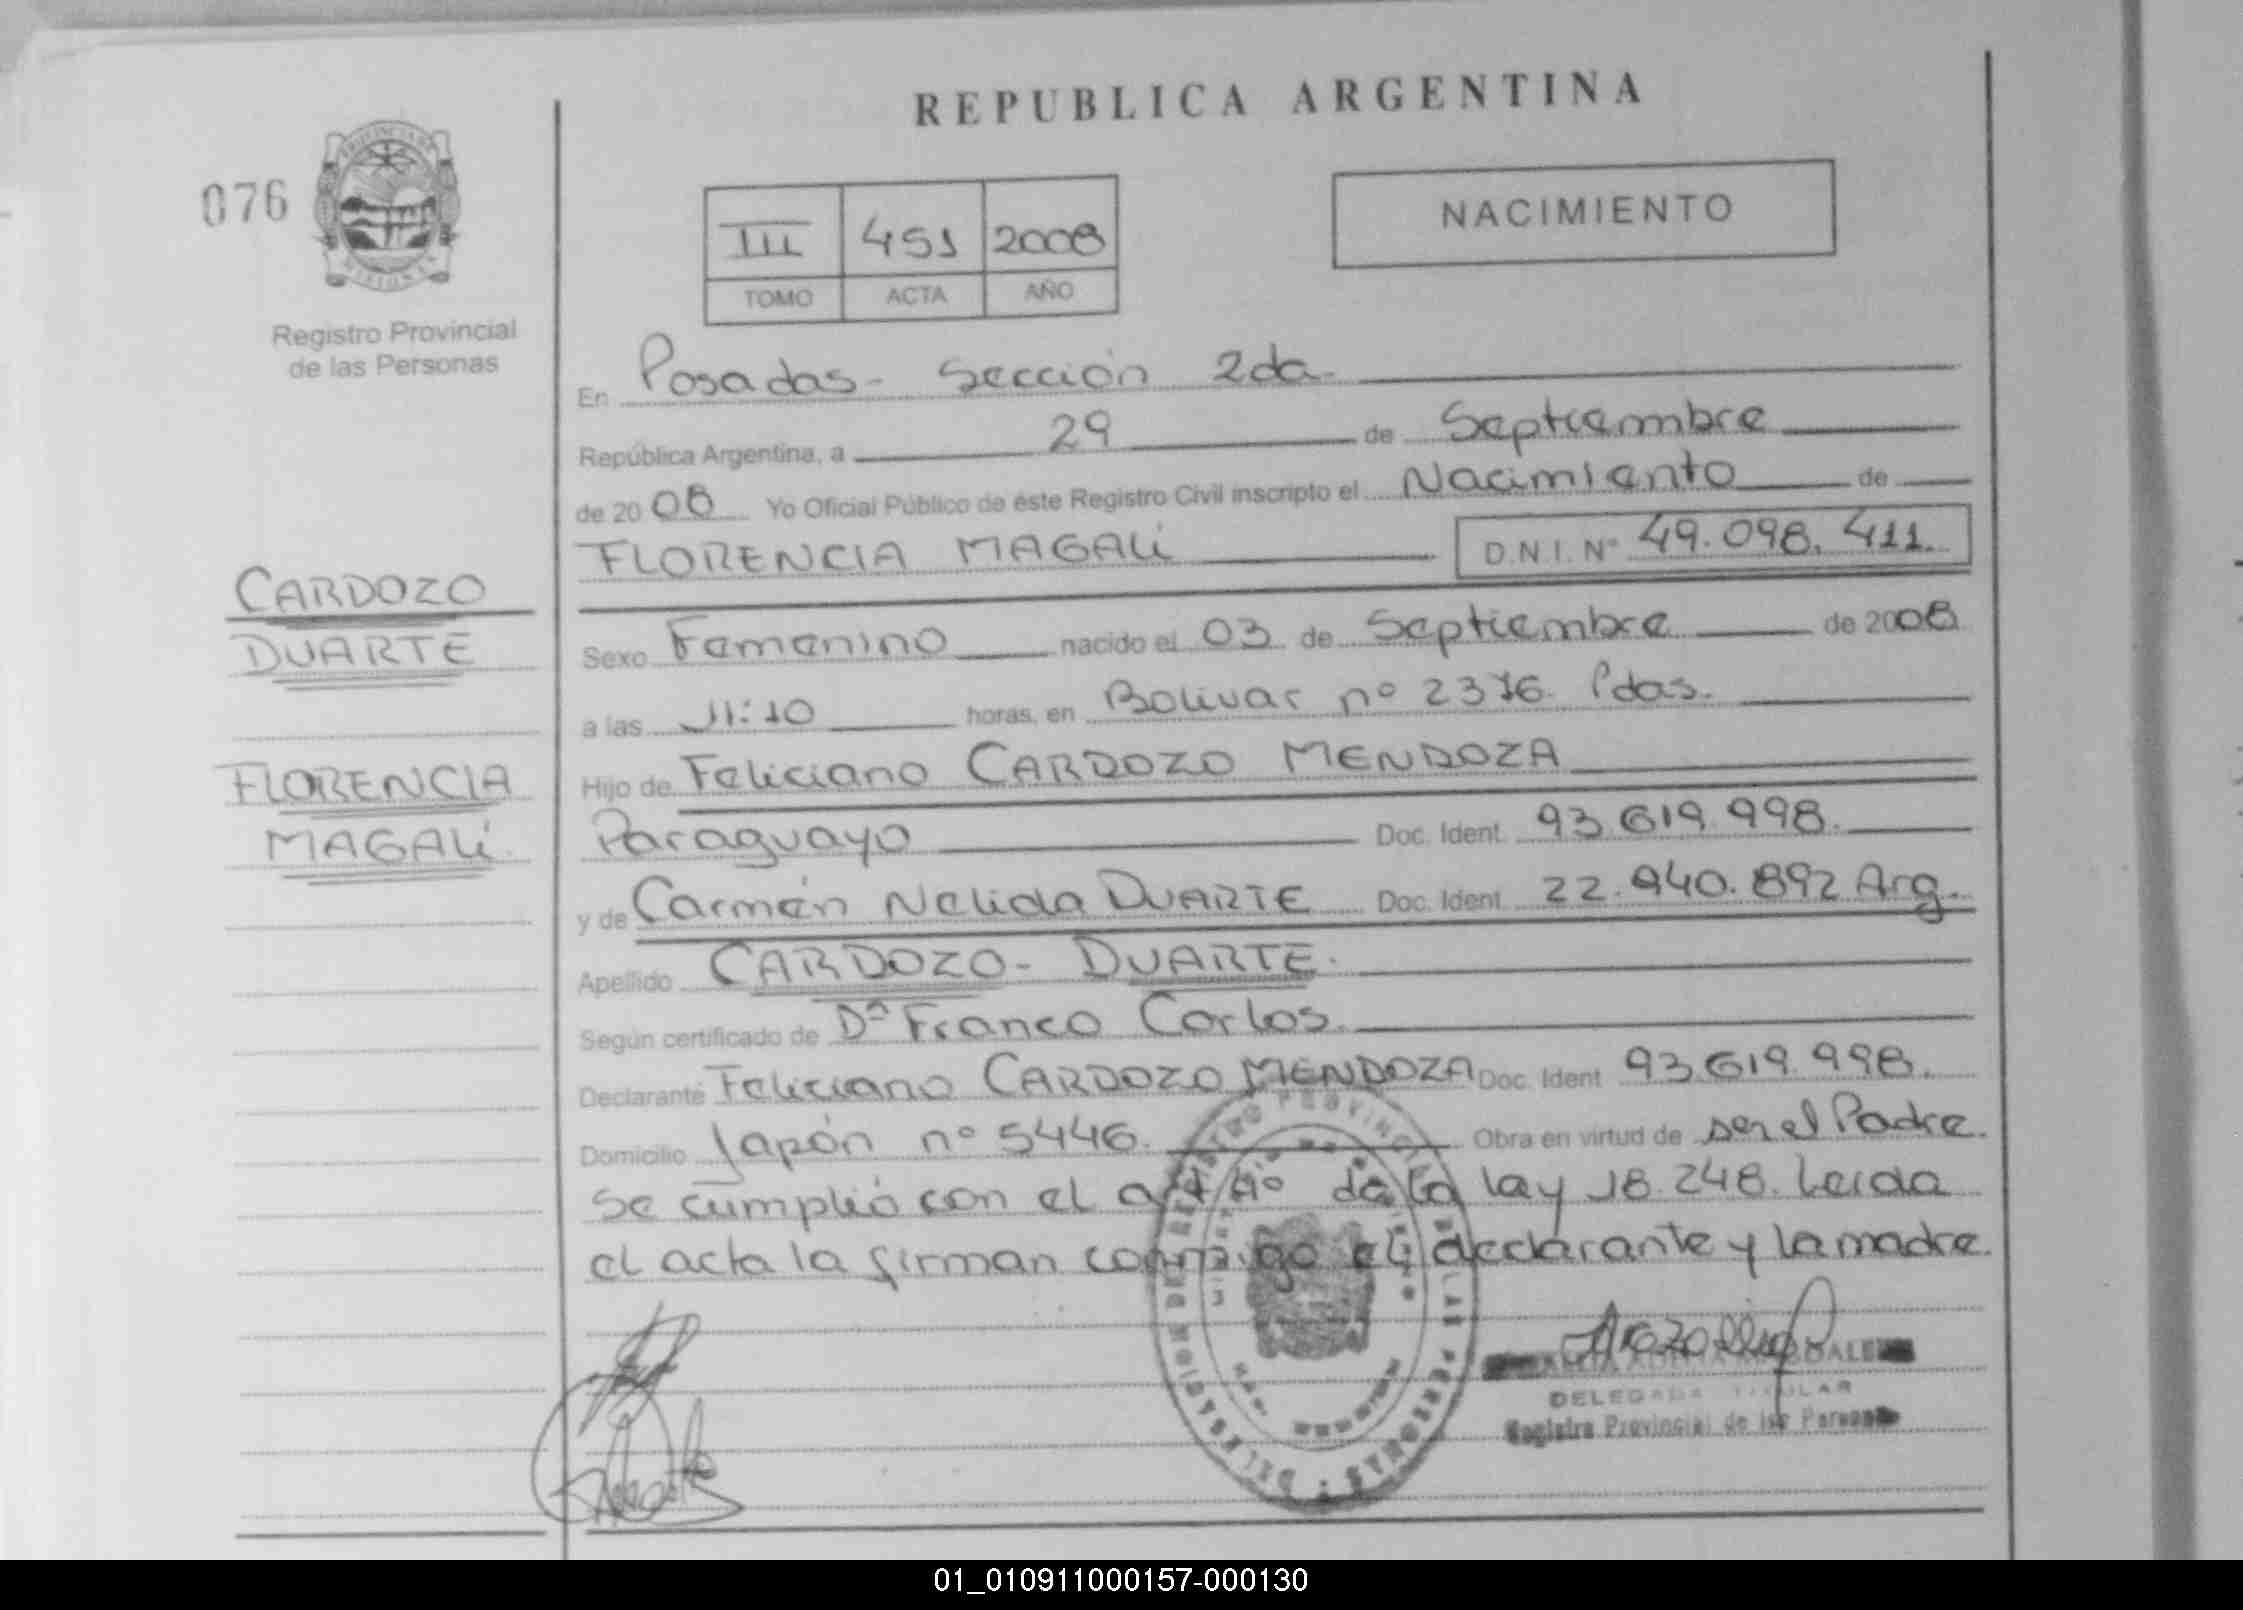 REPUBLICA ARGENTINA
076
PROVINCIA DE
MISIONES
Registro Provincial
de las Personas
III 451 2008
TOMO ACTA AÑO
NACIMIENTO
En Posadas - Sección 2da.
República Argentina, a 29 de Septiembre
de 2008 Yo Oficial Público de éste Registro Civil inscripto el Nacimiento de
FLORENCIA MAGALÍ D.N.I. Nº 49.098.411.
CARDOZO
DUARTE
FLORENCIA
MAGALÍ.
Sexo Femenino nacido el 03 de Septiembre de 2008
a las 11:10 horas, en Bolivar nº 2376. Pdas.
Hijo de Feliciano CARDOZO MENDOZA
Paraguayo Doc. Ident. 93.619.998.
y de Carmén Nelida DUARTE Doc. Ident. 22.940.892 Arg.
Apellido CARDOZO - DUARTE.
Según certificado de Dª Franco Carlos.
Declarante Feliciano CARDOZO MENDOZA Doc. Ident 93.619.998.
Domicilio Japón nº 5446. Obra en virtud de ser el Padre.
Se cumplió con el art de la ley 18.248. Leida
el acta la firman conmigo el declarante y la madre.
DELEGADA TITULAR
Registro Provincial de las Personas
01_010911000157-000130